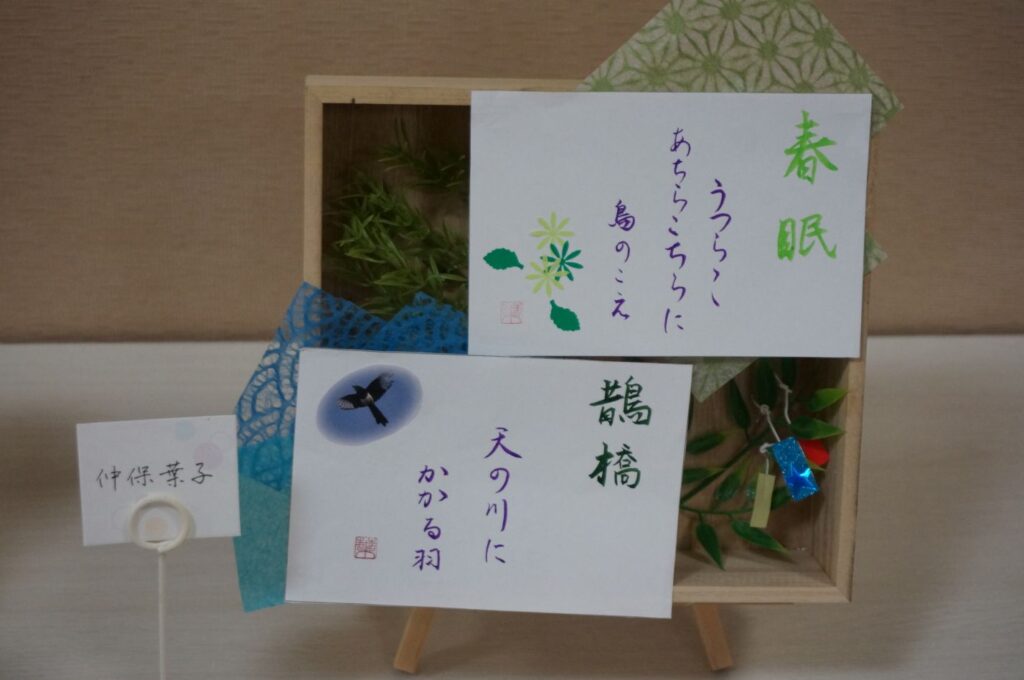 春眠
うつらゝ
あちらこちらに
鳥のこえ
鵲橋
天の川に
かかる羽
仲保葉子